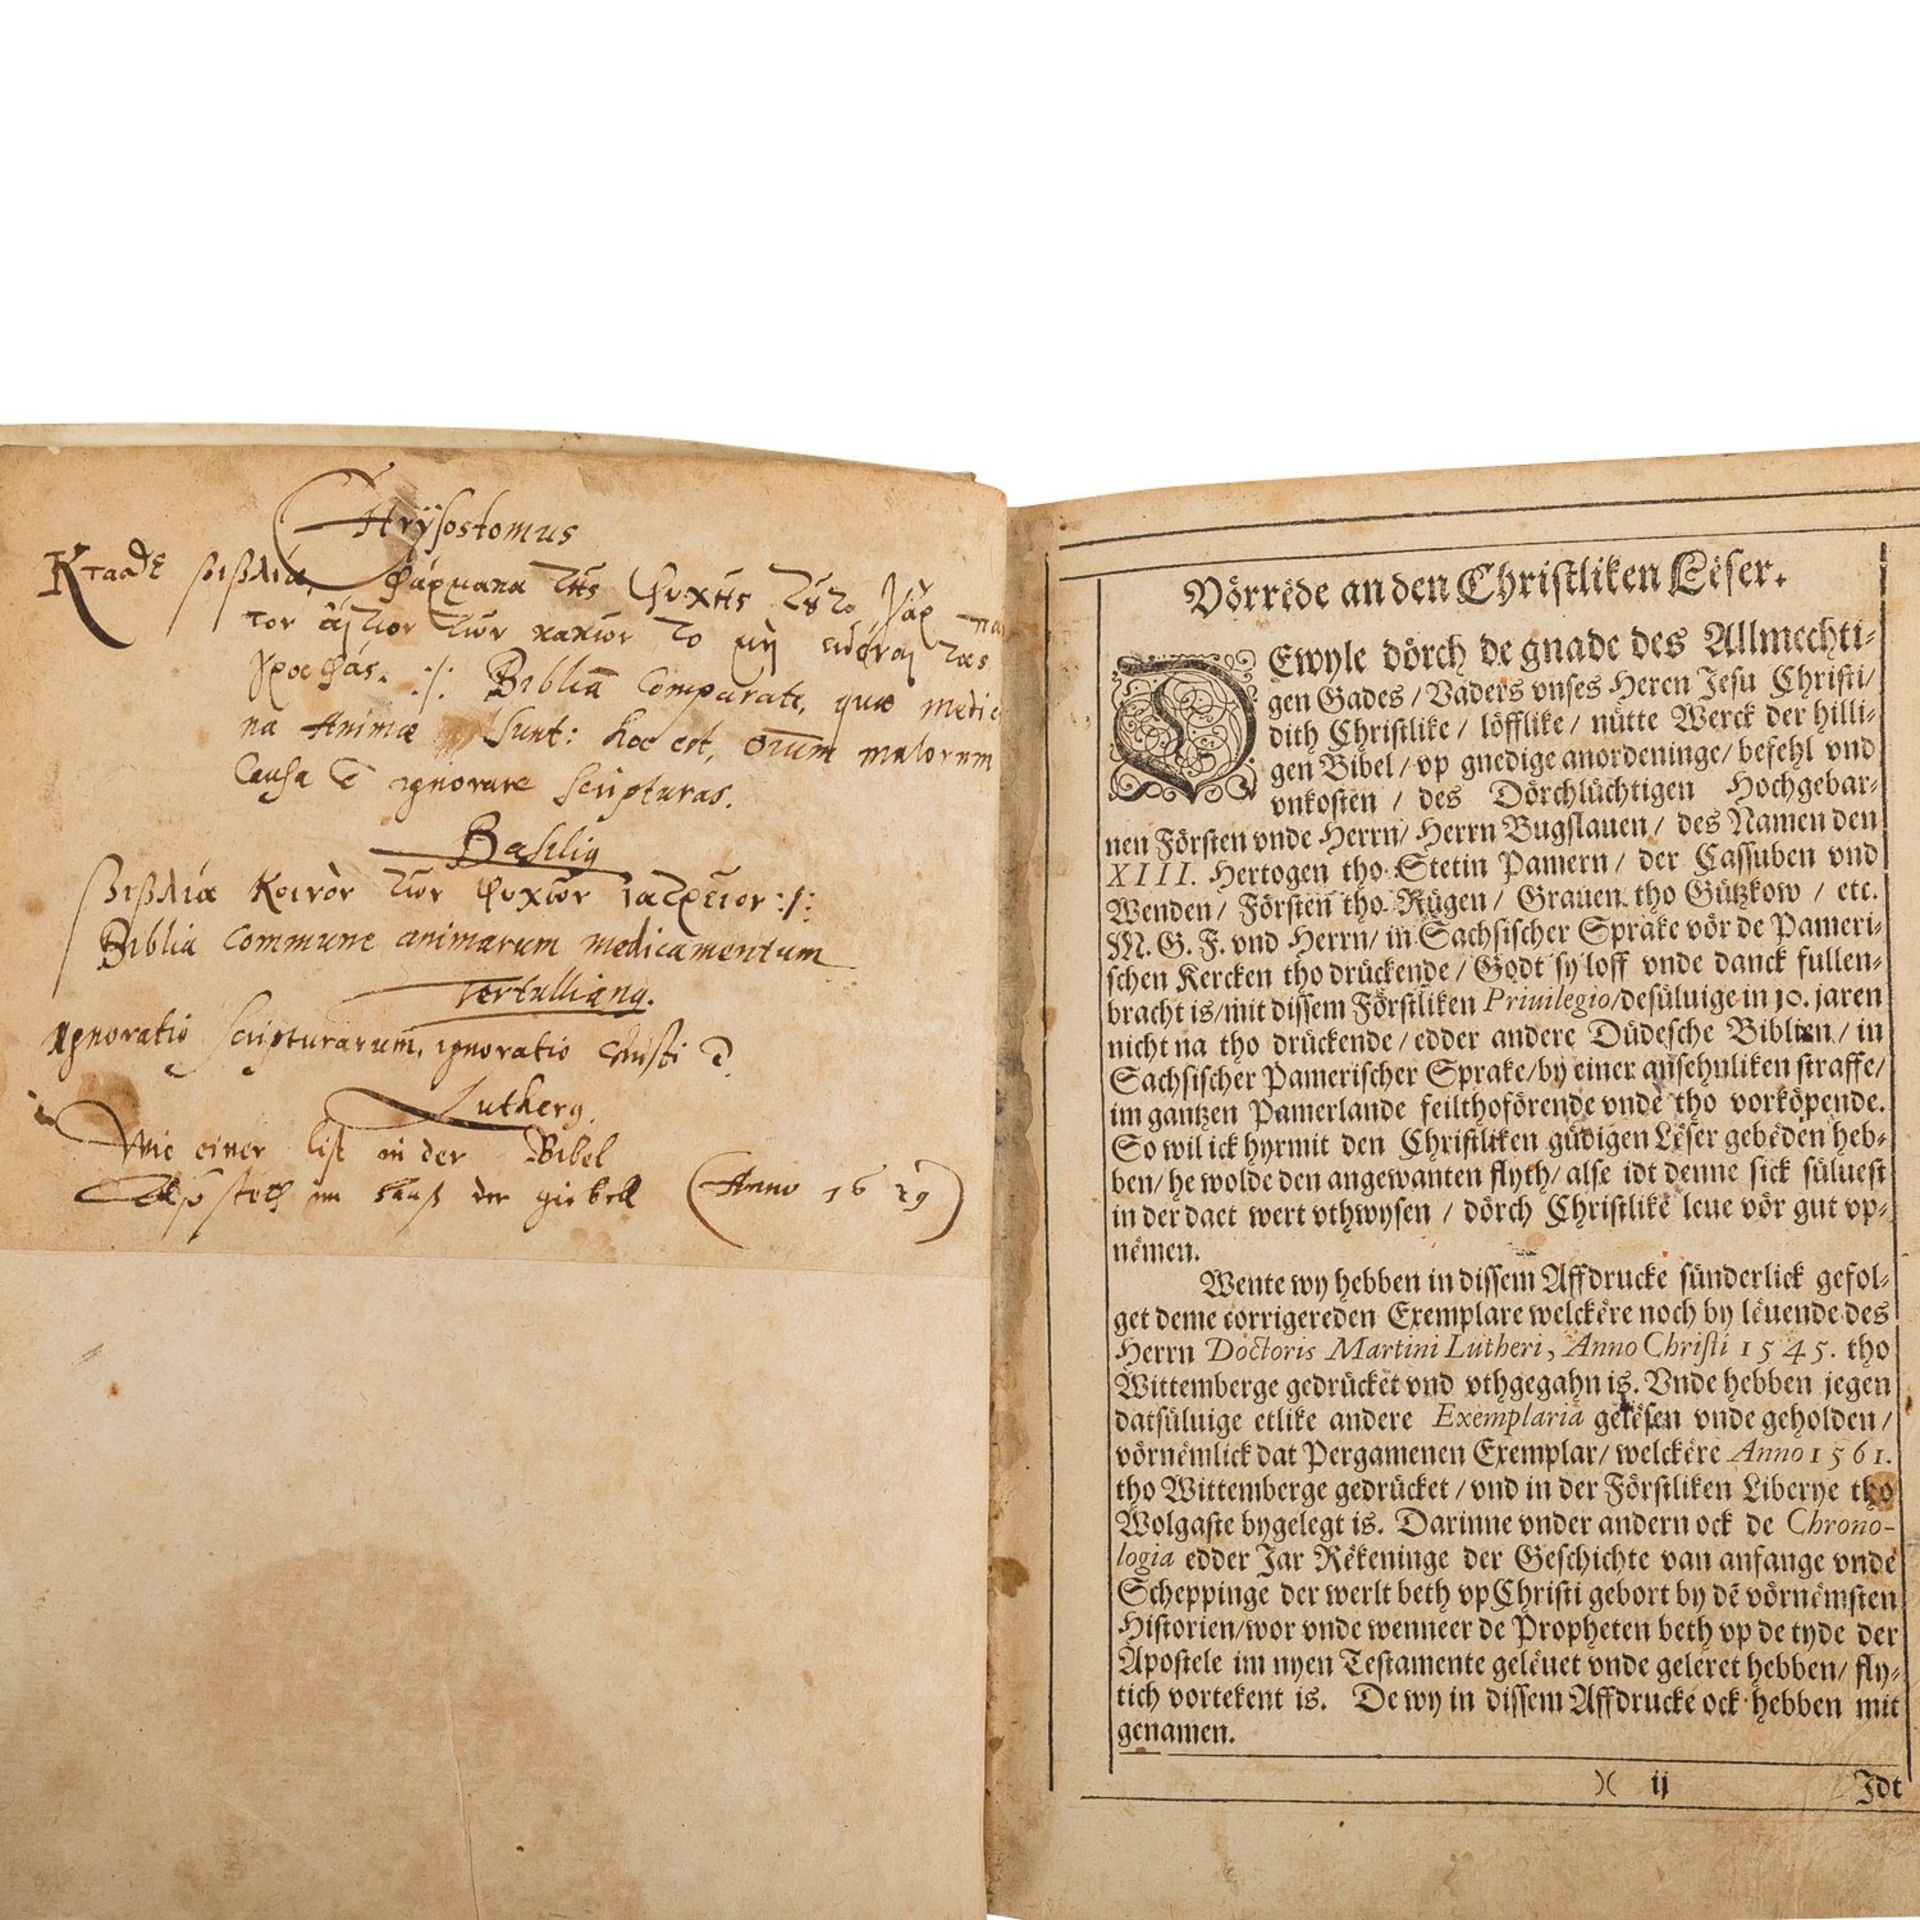 Chrÿsostomus
Κτᾶσθε βιβλία φάρμακα τῆς ψυχῆς τοῦτο γὰρ
των αἴτιον τῶν κακῶν τὸ μὴ εἰδέναι τὰς
γραφάς. Biblia Comparate, quæ medic
na Animæ sunt: hoc est, om̄um malorum
Causa ē ignorare scripturas.
Basilig
βιβλία κοινὸν τῶν ψυχῶν ἰατρεῖον
Biblia commune animarum medicamentum
Tertullianq.
Ignoratio scripturarum, ignoratio Christi ē.
Lutherq.
Wie einer list in der Bibel
steth im hauß der giebell (Anno 1629)
Vörrede an den Christliken Leser.
DEwyle dörch de gnade des Allmechti⸗
gen Gades / Vaders vnses Heren Jesu Christi/
dith Christlike / löfflike / nütte Werck der hilli⸗
gen Bibel / vp gnedige anordeninge/ befehl vnd
vnkosten / des Dörchlüchtigen Hochgebar⸗
nen Försten vnde Herrn/ Herrn Bugslauen / des Namen den
XIII. Hertogen tho Stetin Pamern / der Cassuben vnd
Wenden / Försten tho Rügen / Grauen tho Gützkow / etc.
M. G. F. vnd Herrn/ in Sachsischer Sprake vör de Pameri⸗
schen Kercken tho drückende / Godt sy loff vnde danck fullen⸗
bracht is/ mit dissem Förstliken Priuilegio/ desüluige in 10. jaren
nicht na tho drückende / edder andere Düdesche Biblien / in
Sachsischer Pamerischer Sprake/ by einer ansehnliken straffe/
im gantzen Pamerlande feilthoförende vnde tho vorköpende.
So wil ick hyrmit den Christliken güdigen Lëser gebëden heb⸗
ben/ he wolde den angewanten flyth/ alse idt denne sick süluest
in der daet wert vthwysen / dörch Christlikë leue vör gut vp⸗
nëmen.
Wente wy hebben in dissem Affdrucke sünderlick gefol⸗
get deme corrigereden Exemplare welckëre noch by lëuende des
Herrn Doctoris Martini Lutheri, Anno Christi 1545. tho
Wittemberge gedrücket vnd vthgegahn is. Vnde hebben jegen
datsüluige etlike andere Exemplaria gelësen vnde geholden /
vörnëmlick dat Pergamenen Exemplar/ welckëre Anno 1561.
tho Wittemberge gedrücket / vnd in der Förstliken Liberye tho
Wolgaste bygelegt is. Darinne vnder andern ock de Chrono-
logia edder Jar Rëkeninge der Geschichte van anfange vnde
Scheppinge der werlt beth vp Christi gebort by dē vörnëmsten
Historien/ wor vnde wenneer de Propheten beth vp de tyde der
Apostele im nyen Testamente gelëuet vnde geleret hebben/ fly⸗
tich vortekent is. De wy in dissem Affdrucke ock hebben mit
genamen.
)( ij Idt